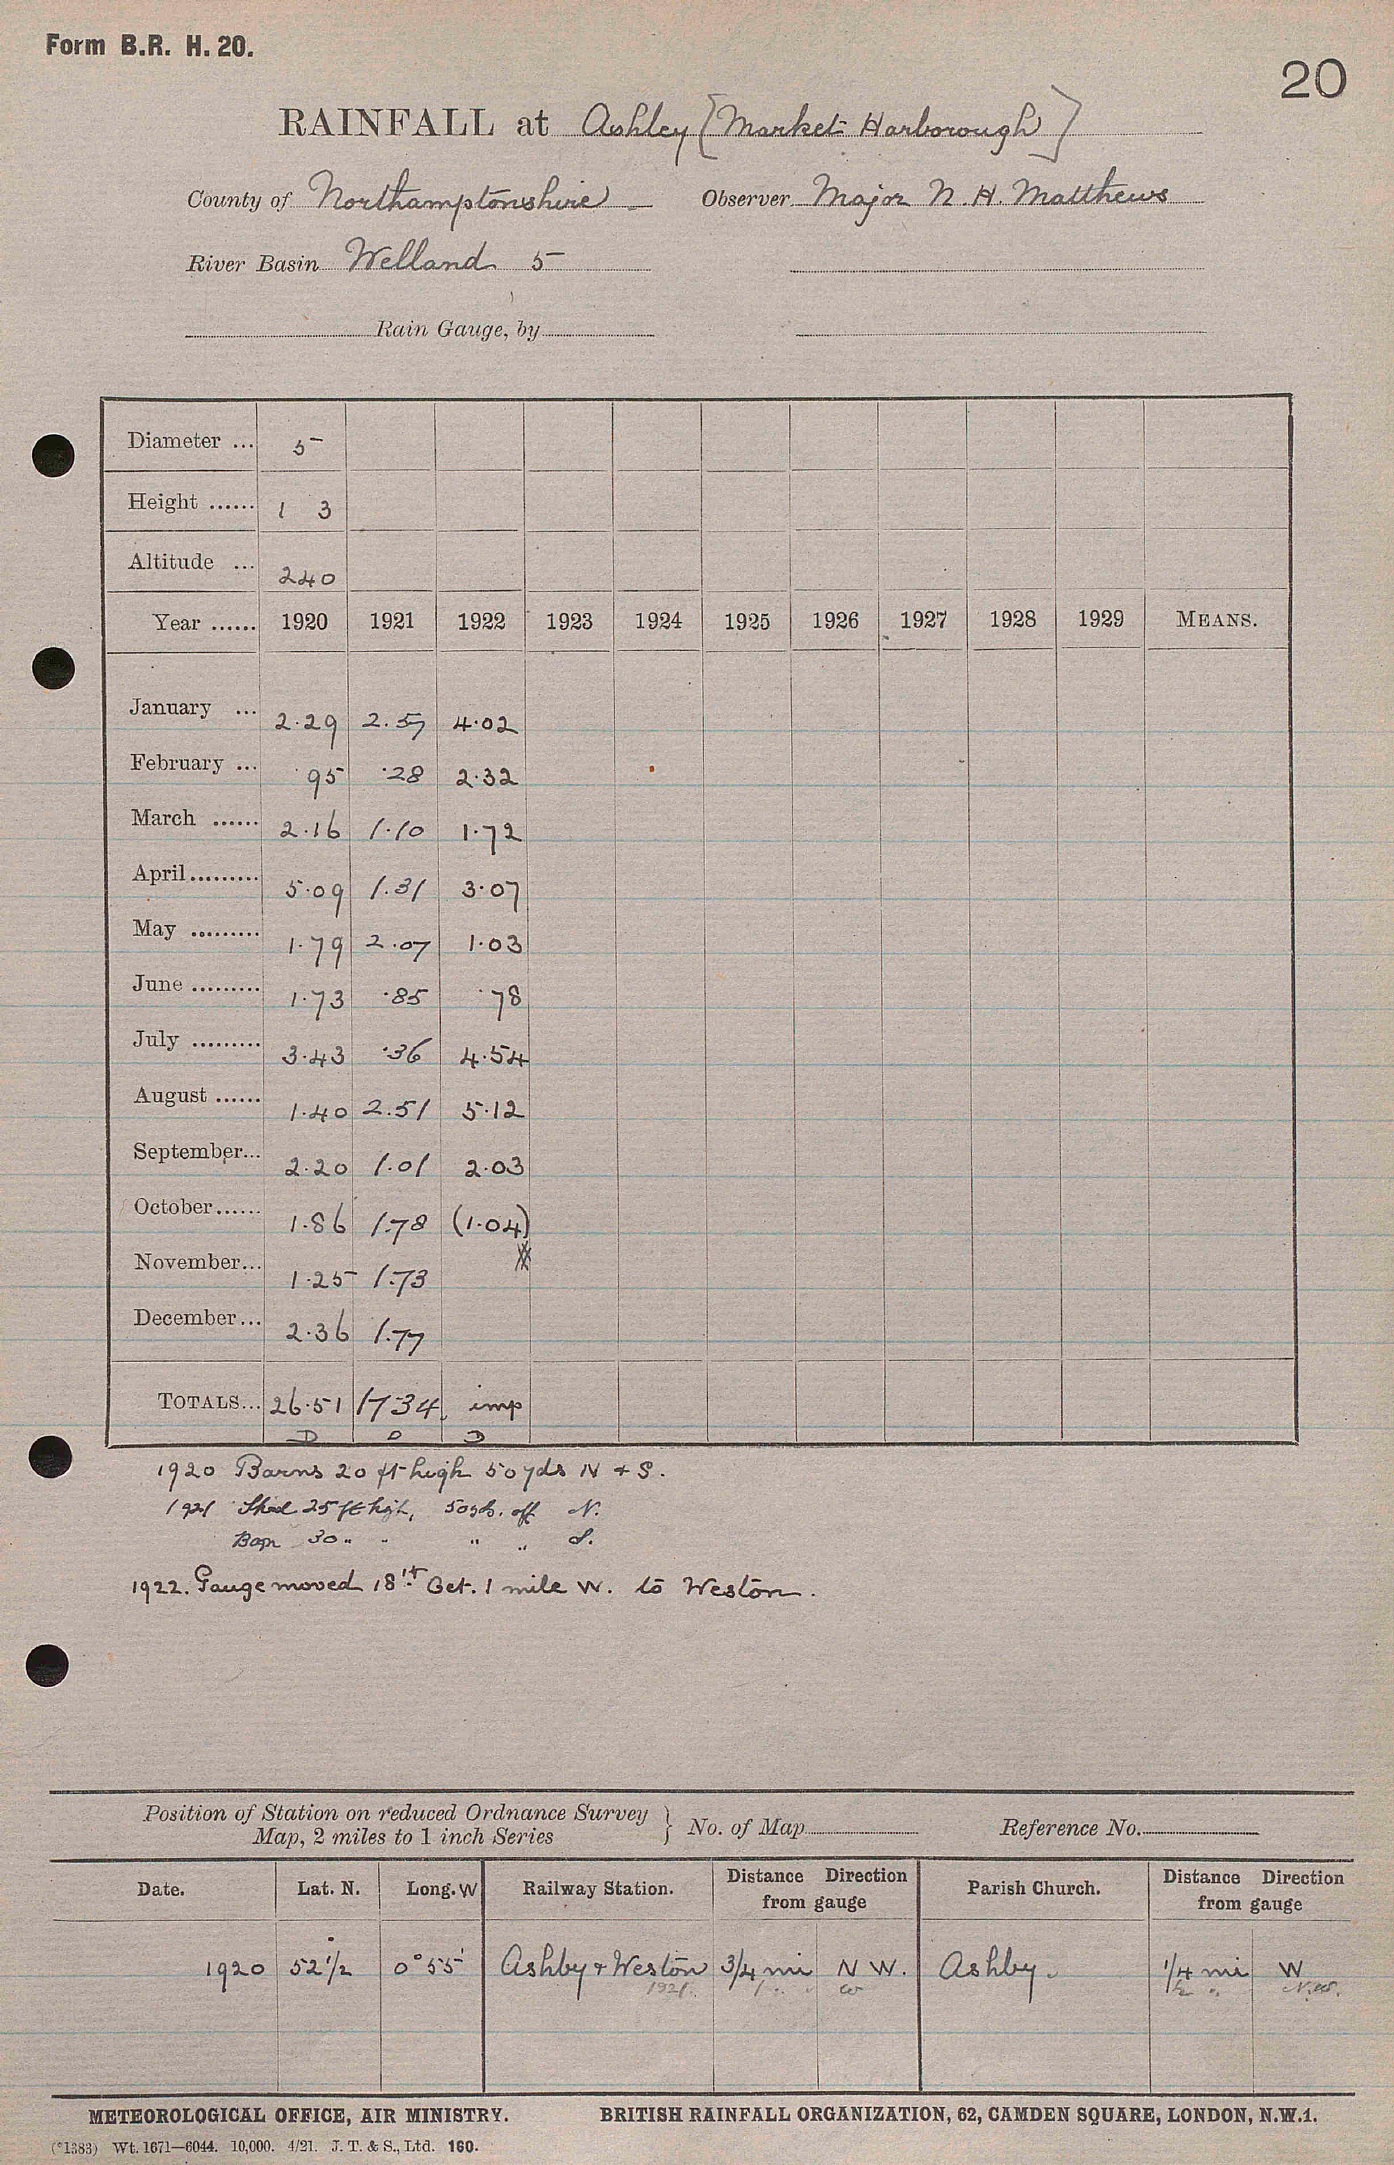 Form B.R. H. 20.
20
RAINFALL at Ashley [Market Harborough]
County of Northamptonshire Observer Major N. H. Matthews
River Basin Welland 5
Rain Gauge, by
Diameter ... 5
Height ...... 1 3
Altitude ... 240
Year ...... 1920 1921 1922 1923 1924 1925 1926 1927 1928 1929 MEANS.
January ... 2.29 2.57 4.02
February ... .95 .28 2.32
March ...... 2.16 1.10 1.72
April ......... 5.09 1.31 3.07
May ......... 1.79 2.07 1.03
June ......... 1.73 .85 .78
July ......... 3.43 .36 4.54
August ...... 1.40 2.51 5.12
September... 2.20 1.01 2.03
October...... 1.86 1.78 (1.04)
November... 1.25 1.73
December... 2.36 1.77
TOTALS... 26.51 17.34 imp
D D D
1920 Barns 20 ft high 50 yds N + S.
1921 Shed 25 ft high, 50 yds. off N.
30 " " " " S.
1922. Gauge moved 18th Oct. 1 mile W. to Weston.
Position of Station on reduced Ordnance Survey
Map, 2 miles to 1 inch Series } No. of Map Reference No.
Date. Lat. N. Long. W Railway Station. Distance Direction from gauge Parish Church. Distance Direction from gauge
1920 52 1/2 0° 55' Ashby + Weston 3/4 mi N W. Ashby. 1/4 mi W
1921. 1 " W 1/2 " N.W.
METEOROLOGICAL OFFICE, AIR MINISTRY. BRITISH RAINFALL ORGANIZATION, 62, CAMDEN SQUARE, LONDON, N.W.1.
(*1383) Wt. 1671—6044. 10,000. 4/21. J. T. & S., Ltd. 160.